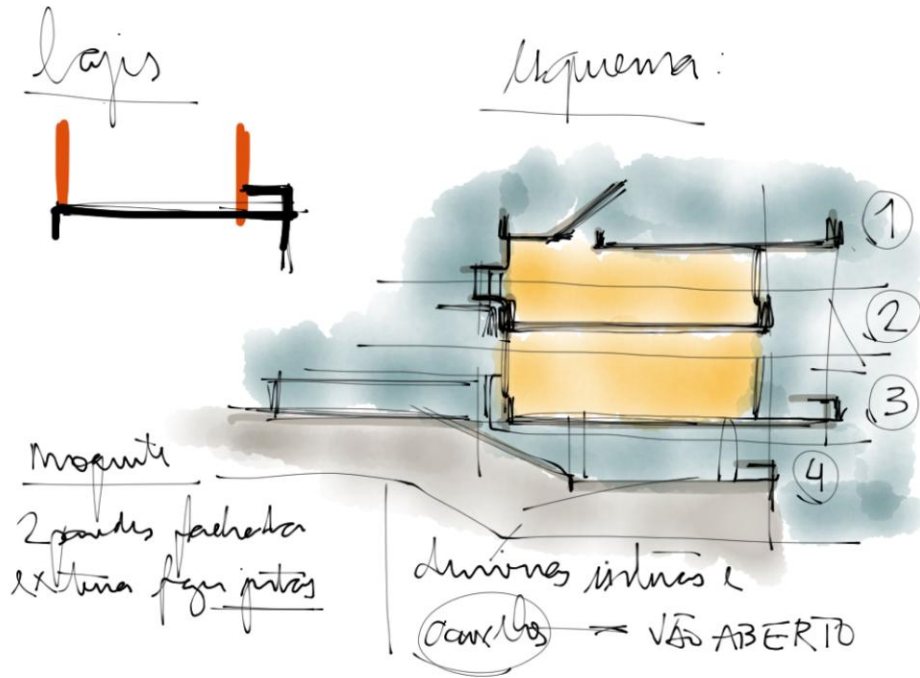 lajes
esquema:
1
2
3
4
maquete
2 paredes fachada
externa juntas
divisões internas e
caixilhos — VÃO ABERTO